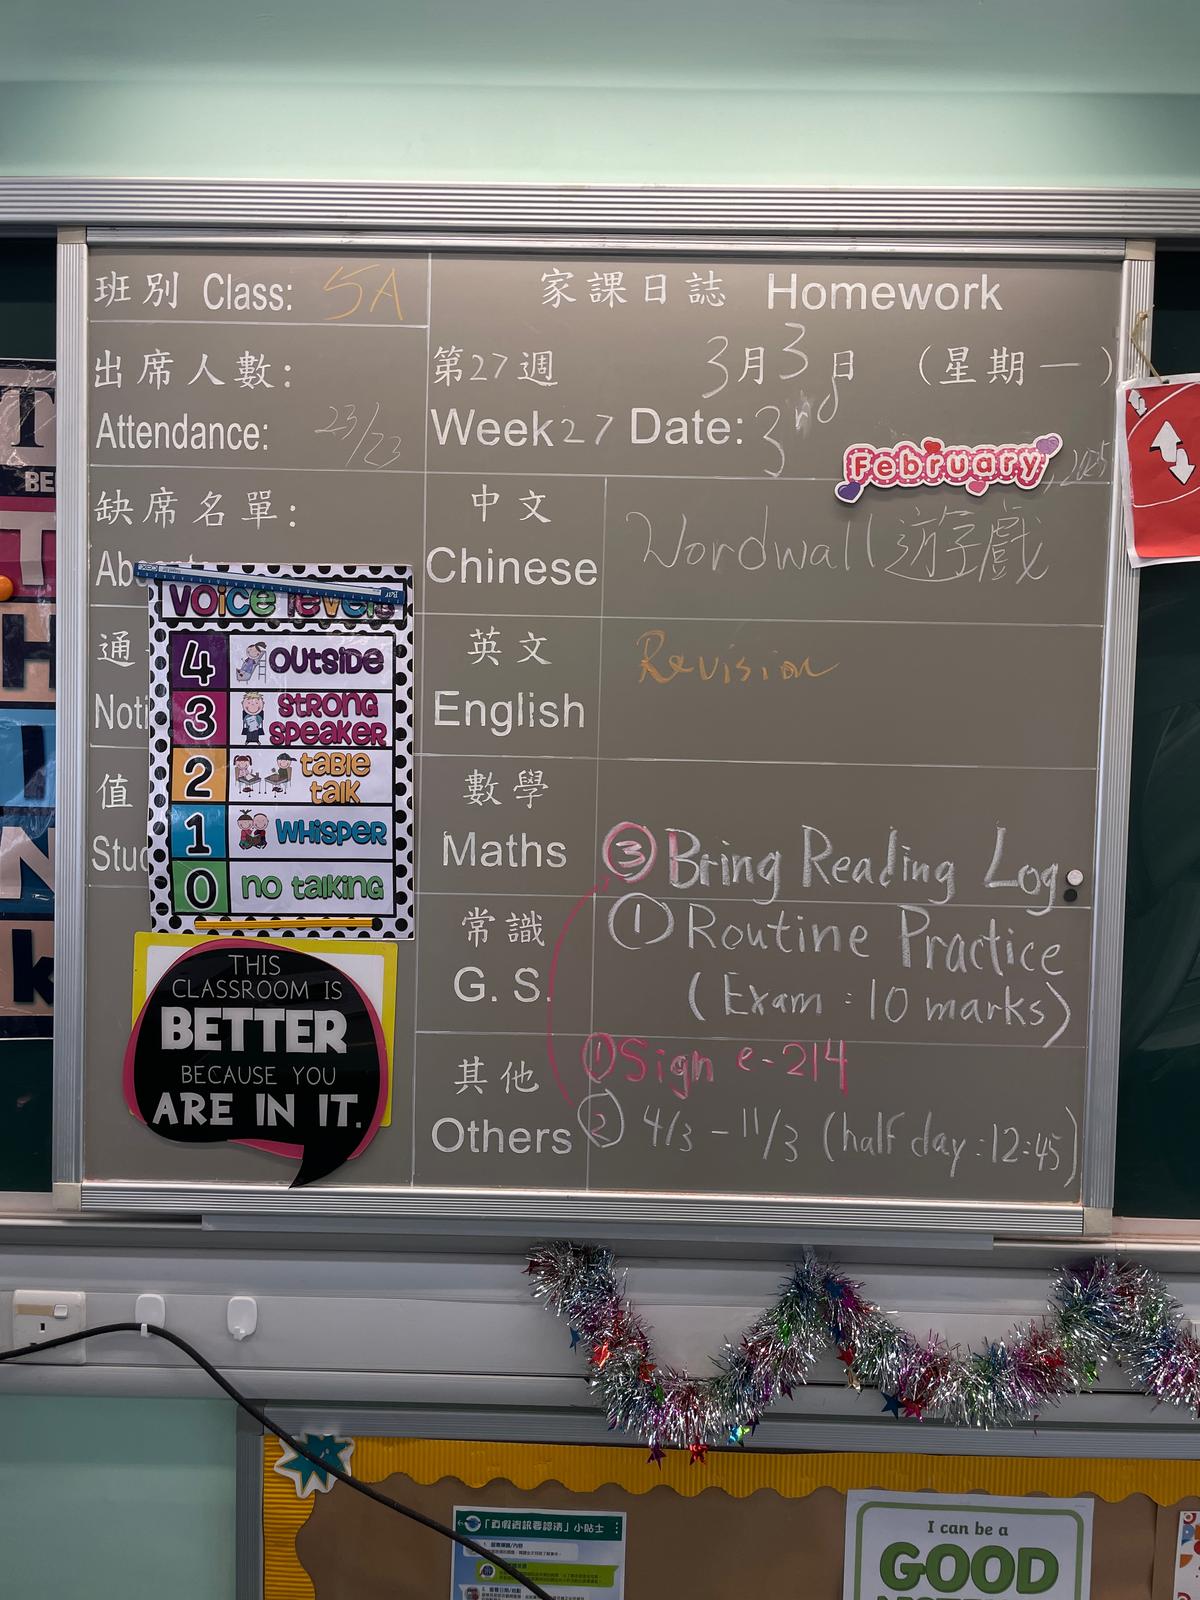 班別 Class: 5A
家課日誌 Homework
出席人數:
Attendance: 23/23
第27週 3月3日 (星期一)
Week 27 Date: 3rd February, 2025
缺席名單:
Ab
通
Noti
值
Stud
中文
Chinese
Wordwall 遊戲
英文
English
Revision
數學
Maths
③ Bring Reading Log.
常識
G. S.
① Routine Practice
(Exam : 10 marks)
其他
Others
① Sign e-214
② 4/3 - 11/3 (half day : 12:45)
voice levels
4 outside
3 strong speaker
2 table talk
1 whisper
0 no talking
THIS
CLASSROOM IS
BETTER
BECAUSE YOU
ARE IN IT.
T
BE
T
H
I
N
k
「真假資訊要認清」小貼士
I can be a
GOOD